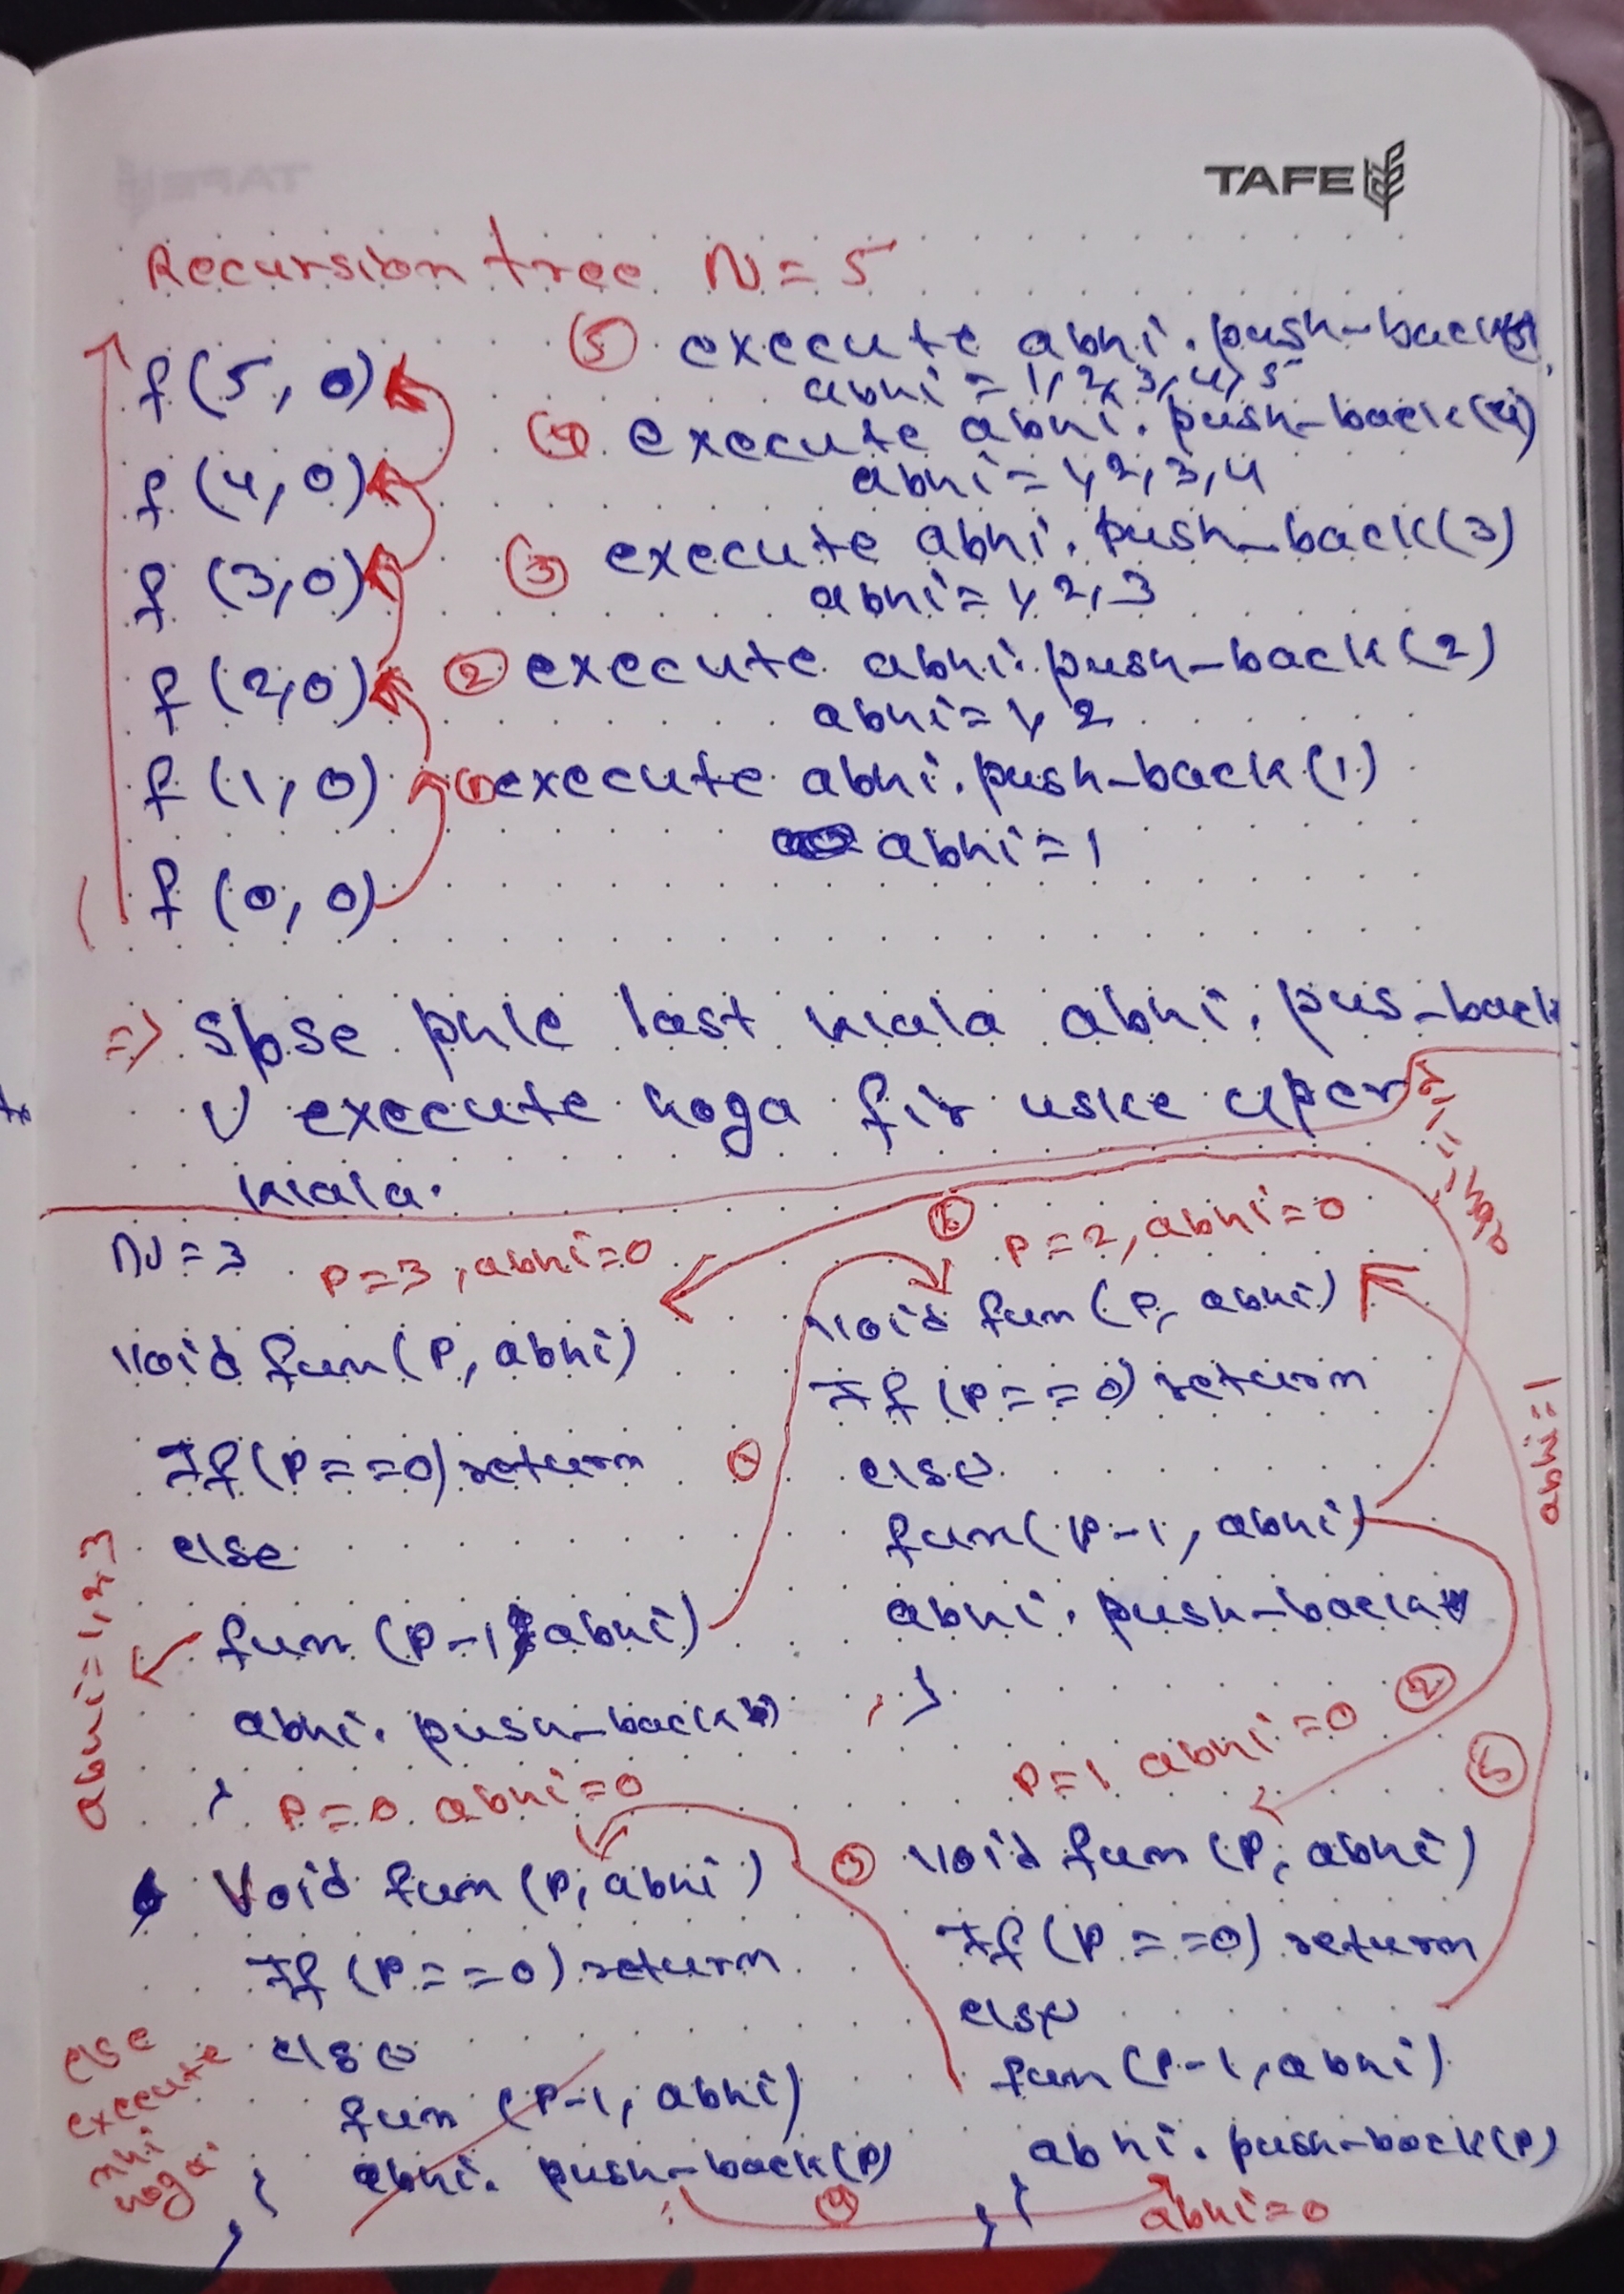 TAFE
Recursion tree N = 5
f(5, 0) ⑤ execute abhi.push-back(5)
abhi = 1, 2, 3, 4, 5
f(4, 0) ④ execute abhi.push-back(4)
abhi = 1, 2, 3, 4
f(3, 0) ③ execute abhi.push-back(3)
abhi = 1, 2, 3
f(2, 0) ② execute abhi.push-back(2)
abhi = 1, 2
f(1, 0) ① execute abhi.push-back(1)
abhi = 1
f(0, 0)
=> Sbse phle last wala abhi.pus-back
execute hoga fir uske uper
wala.
N = 3 P=3, abhi=0
void fun(P, abhi)
If(P==0) return
else
fun(P-1, abhi)
abhi.push-back
abhi=1,2,3
①
⑥ P=2, abhi=0
void fun(P, abhi)
If(P==0) return
else
fun(P-1, abhi)
abhi.push-back
}
abhi=1
②
⑤
P=0 abhi=0
void fun(P, abhi)
If(P==0) return
else
fun(P-1, abhi)
abhi.push-back(P)
else
execute
nhi
hoga
P=1 abhi=0
③ void fun(P, abhi)
If(P==0) return
else
fun(P-1, abhi)
abhi.push-back(P)
④ abhi=0